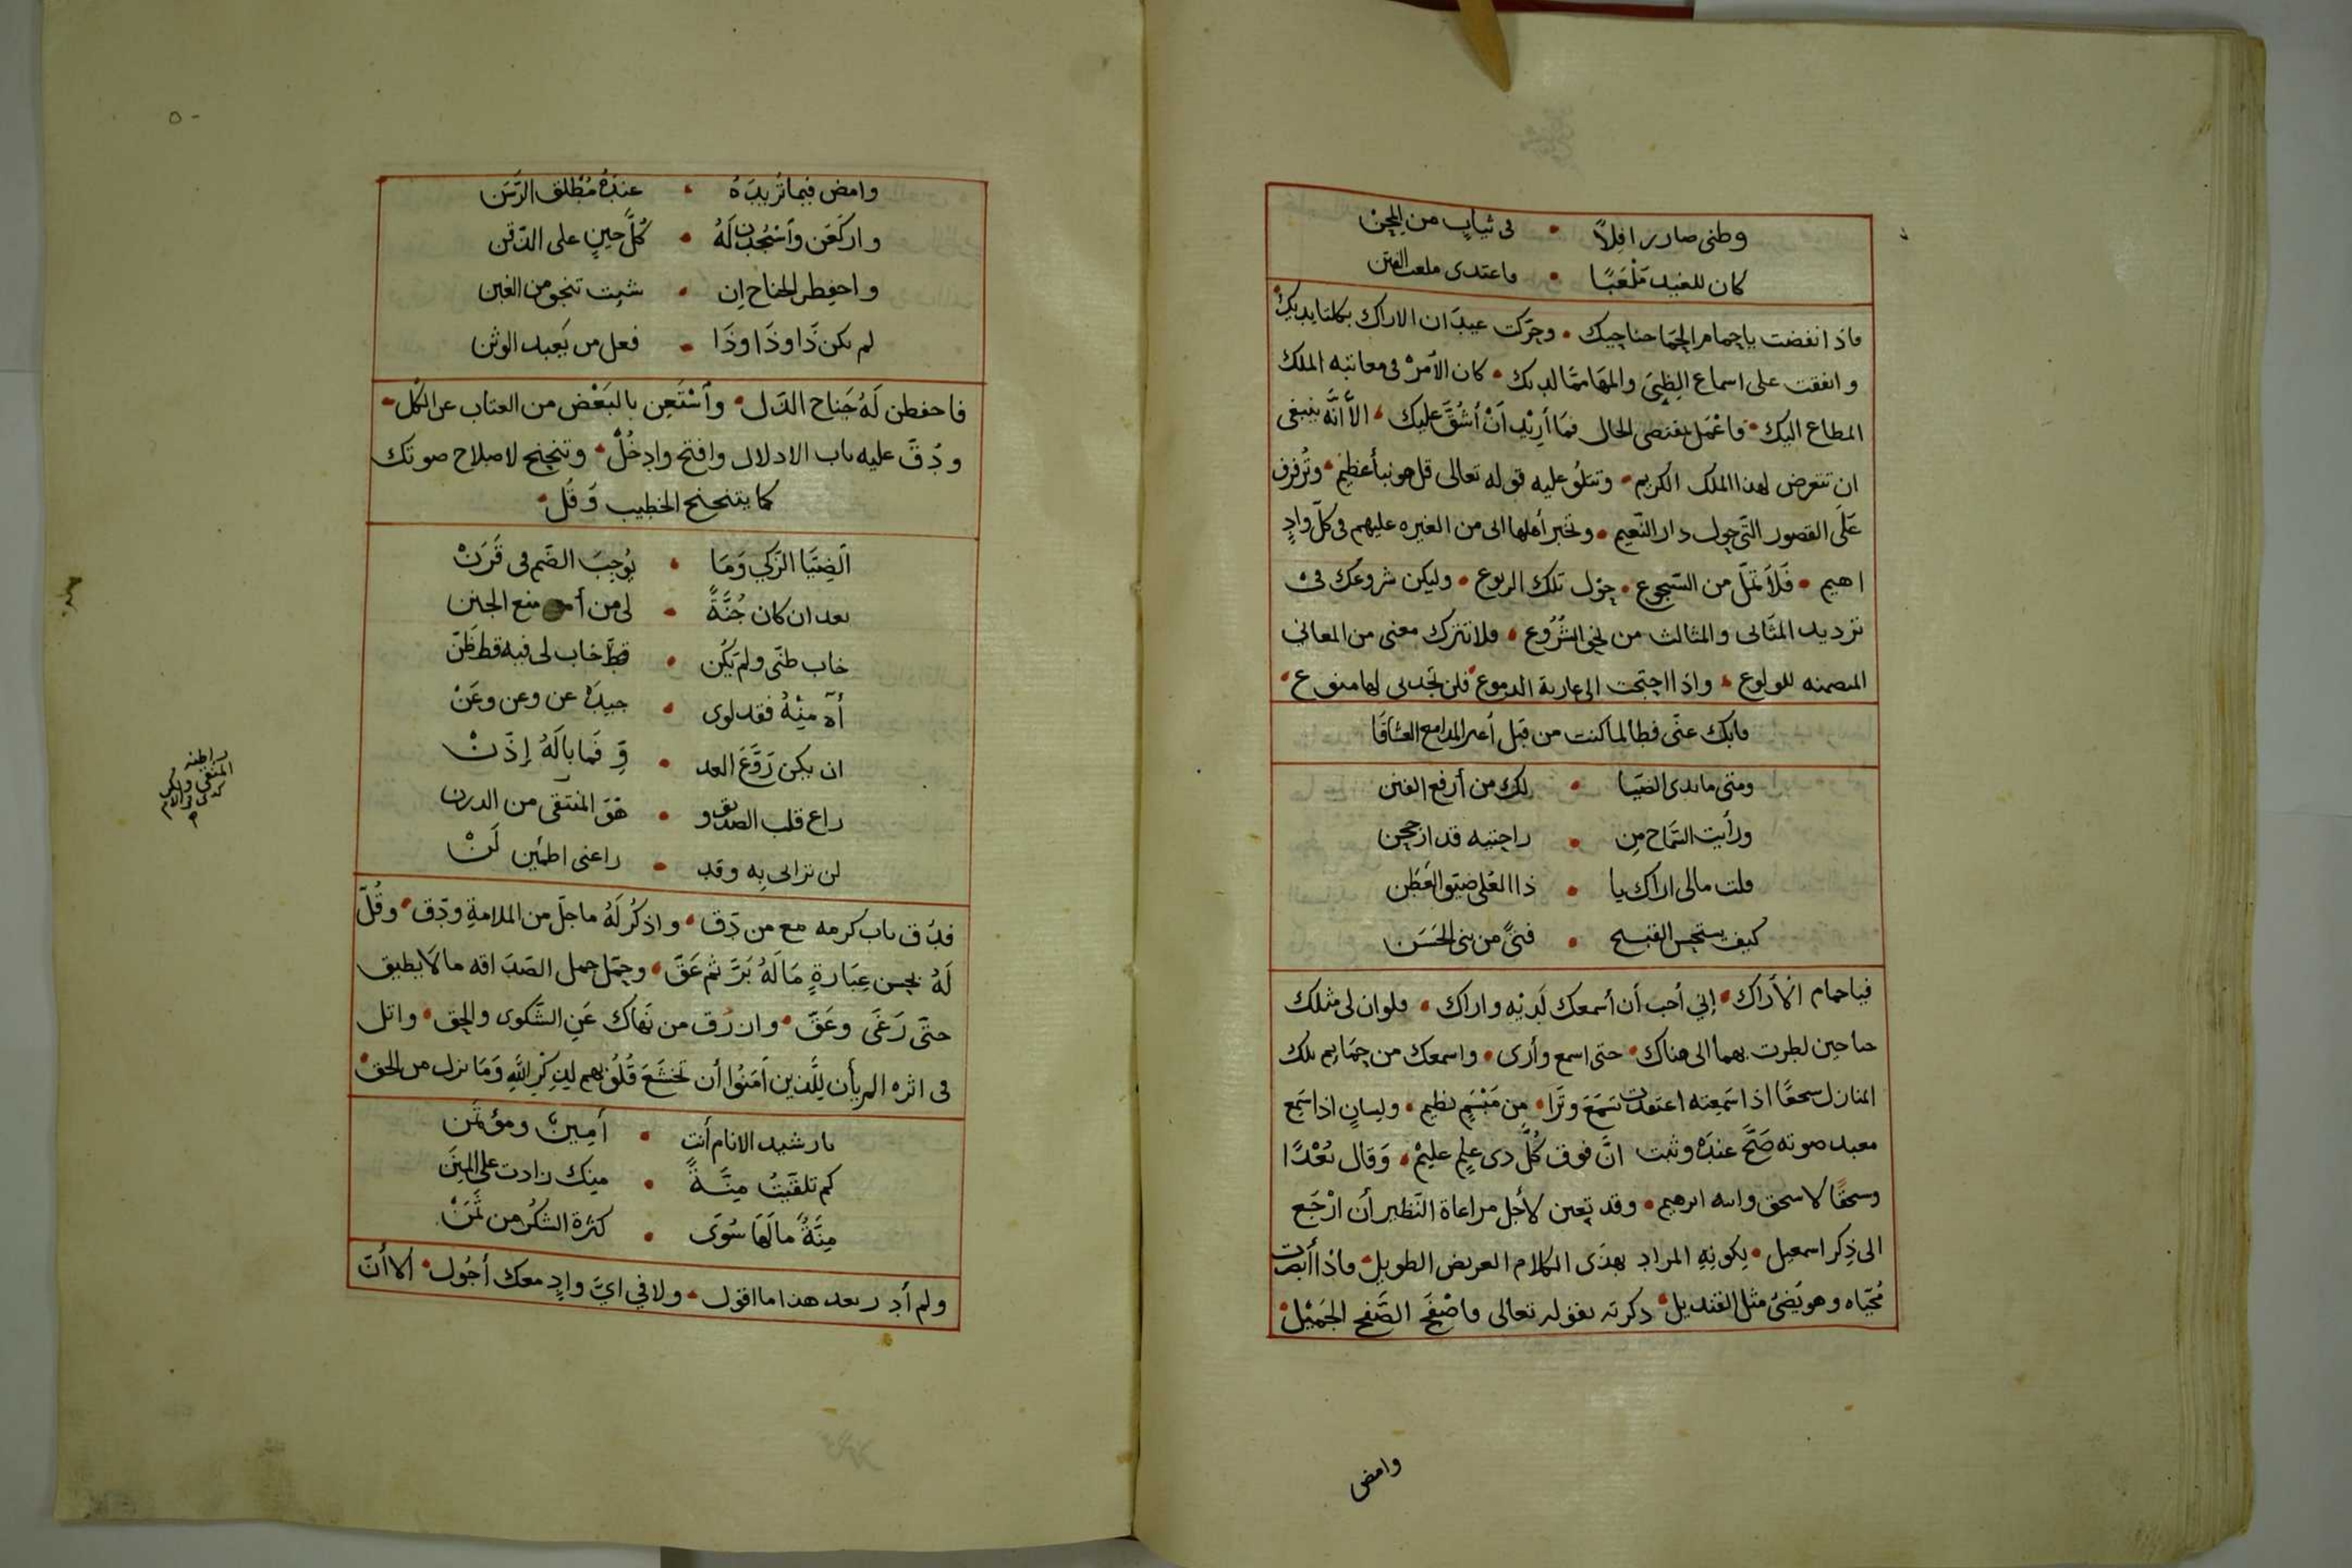 وطنى صار رافِلاً • فى ثيابٍ من المحن
كان للغيد مَلْعَبًا • فاعتدى ملعب الفتن
فاذ انفضت ياحمام الحِمَا جناحيك • وحرّكت عيدَان الاراك بكلتا يديك
واتفقت على اسماع الظبىَ والمهَا ممّا لديك • كان الأمرُ فى معاتبه الملك
المطاع اليك • فاعْمَل بمقتضى الحال فمَا أُرِيْد أنْ أشُقَّ عليك • الأ أنَّه ينبغى
ان تتعرض لهذا الملك الكريم • وتتلُو عليه قوله تعالى قل هو نبأ عظيم • وتُرفرف
عَلَى القصور التّى حول دار النّعيم • وتخبر أهلها انى من الغيره عليهم فى كلّ وادٍ
اهيم • فَلاَ تملّ من السّجوع • حوْل تلك الربوع • وليكن شروعك فى
ترديد المثَانى والمثالث من الشُرُوع • فلا تترك معنى من المعانى
المضمنه للولوع • واذا احتجت الى عارية الدموع فلن تجدنى لها منوع •
فابك عنّى فطالما كنت من قبل أعير المدامع العشّاقَا
ومتى مابدى الضيَا • لك من أرفع الفنن
ورأيت السَّماح مِن • راحتيه قد ارجحن
قلت مالى اراك يا • ذا العُلى ضيّق العَطَن
كيف يستحسن القبيح • فتىً من بنى الحَسَن
فيا حمام الأراك • إنى أحب أن أسمعك لَدَيْهِ واراك • فلو ان لى مثلك
جناحين لطرت بهما الى هناك • حتى اسمع وأرى • واسمعك من حمَايم تلك
المنازل سجعًا اذا سَمِعته اعتقدت تسْمَعَ وتَرَا • مِن مَبْسَمٍ نظيم • ولِسانٍ اذا سَمع
معبد صوته صَحَّ عندَهُ وثبت انَّ فوق كُلّ ذى عِلِم عليمْ • وَقال بُعْدًا
وسحقًا لاسحق وابنه ابرهيم • وقد تعين لأجل مراعاة النّظير أن ارْجَع
الى ذِكر اسمعيل • لِكونِهِ المراد بهذَى الكلام العريض الطويل • فاذا أبصرت
مُحيّاه وهو يُضئ مثل القنديل • ذكرته بقوله تعالى فاصْفَح الصَّفح الجَمِيْل •
وامض
وامض فيما تُريدَهُ • عِندَهُ مُطْلق الرَّسَن
واركَعَن وأسْجُدَن لَهُ • كُلَّ حِينٍ على الذّقن
واخفِظن الجناح اِن • شِئت تنجو من الغبن
لم يكن ذَا وذَا وذَا • فعل من يَعبد الوثن
فاخفظن لَهُ جَناح الذّل • وأسْتَعِن بالبَعْض من العتاب عن الكل •
ودُقّ عليه باب الادلال وافتح وادخُلْ • وتنحنح لاصلاح صوتك
كما يتنحنح الخطيب وَقُل •
ألضِيَا الزّكي وَمَا • يُوجِبَ الضّم فى قَرَنْ
بعد ان كان جُنَّةً • لى من أمنع الجنن
خاب ظنّى ولم يَكُن • قطّ خاب لى فيه قط ظَنّ
أه مِنْهُ فقد لوى • جيدَهُ عن وعن وعَنْ
ان يكن رَوَّعَ العد • وِّ فَمَا بالَهُ إِذَنْ
راع قلب الصديق و • هْوَ المنتقى من الدرن
لن ترانى بِه وقد • راعنى اطمئِن لَنْ
فدُق باب كرمه مع من دَق • واذكُر لَهُ ما جلّ من الملامةِ ودَق • وقُلّ
لَهُ بحسن عِبَارةٍ مَالَهُ بَرَّ ثم عَقّ • وحمّل جمل الصَدَاقه مالاَ يطيق
حتّى رَغَى وعَقّ • وان رُق من نَهاك عَنِ الشَّكوى والحق • واتل
فى اثره الم يأن لِلَّذين اَمَنُوا أن تخشَعَ قُلُوبهم لِذِكرِ اللّهِ وَمَا نزل من الحق •
يا رشيد الانام أنت • أمِين ومؤتَمن
كم تلقّيتُ مِنَّةً • مِنك زادت على المِنَن
مِنَّةً مالَهَا سُوَى • كثرة الشكُر من ثَمَنْ
ولم أدر بعد هذا ما اقول • ولا في ايّ وادٍ معك أجُول • ألا أنّ